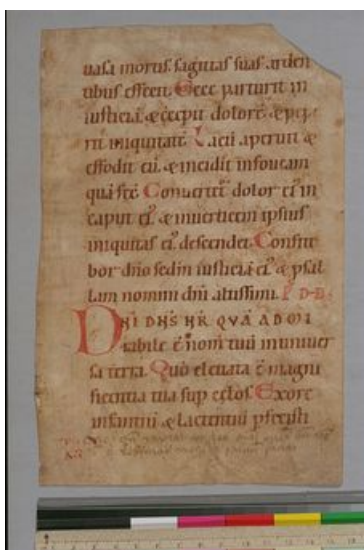 uasa mortis sagittas suas arden
tibus effecit. Ecce parturit in
iusticiā ⁊ cepit dolorē ⁊ pepe
rit iniquitatē Lacū aperuit ⁊
effodit eū. ⁊ incidit in foueam
quā fec̄ Conuertet͛ dolor ei͛ in
caput ei͛ ⁊ in uerticem ipsius
iniquitas ei͛ descendet. Confite
bor dn̄o sed̄m iusticiā ei͛ ⁊ psal
lam nomini dn̄i altissimi.
DNĒ DN̄S NR̄ QVĀ ADMI
rabile ē nom̄ tuū in uniuer
sa terra. Quō eleuata ē magni
ficentia tua sup celos. Ex ore
infantiū ⁊ lactentiū pfecisti